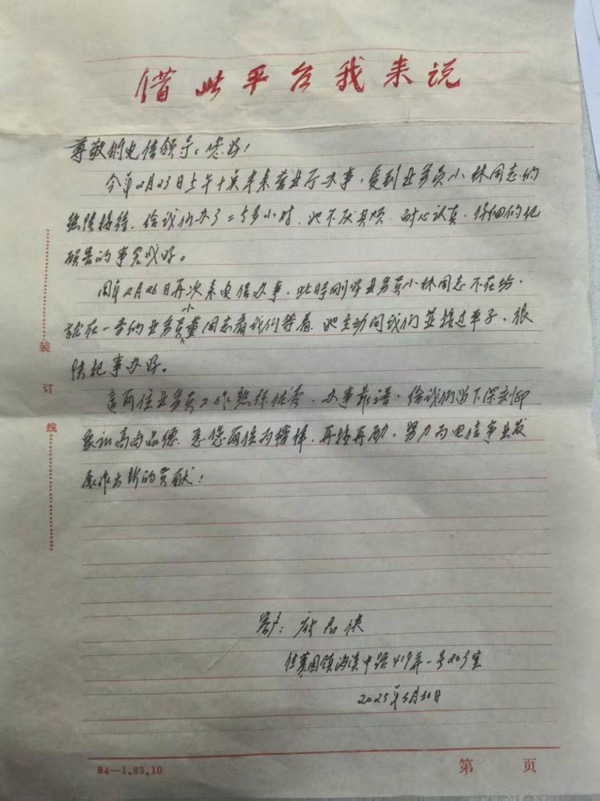 借此平台我来说
尊敬的电信领导：您好！
今年2月23日上午十点半来营业厅办事，受到业务员小林同志的
热情接待，给我们办了二5多小时，她不厌其烦，耐心认真，仔细的把
所要的事完成好。
同年2月26日再次来电信办事，此时刚好业务员小林同志不在给，
就在一旁的业务员小董同志看我们等着，她主动问我们并接过单子，很
快把事办好。
这两位业务员工作熟练优秀，办事靠谱，给我们留下深刻印
象和高尚品德，愿您两位为榜样，再接再励，努力为电信事业发
展作出新的贡献！
客户：
住 镇海滨中路419弄一号203室
2025年3月10日
装
订
线
84—1.83.10
第 页